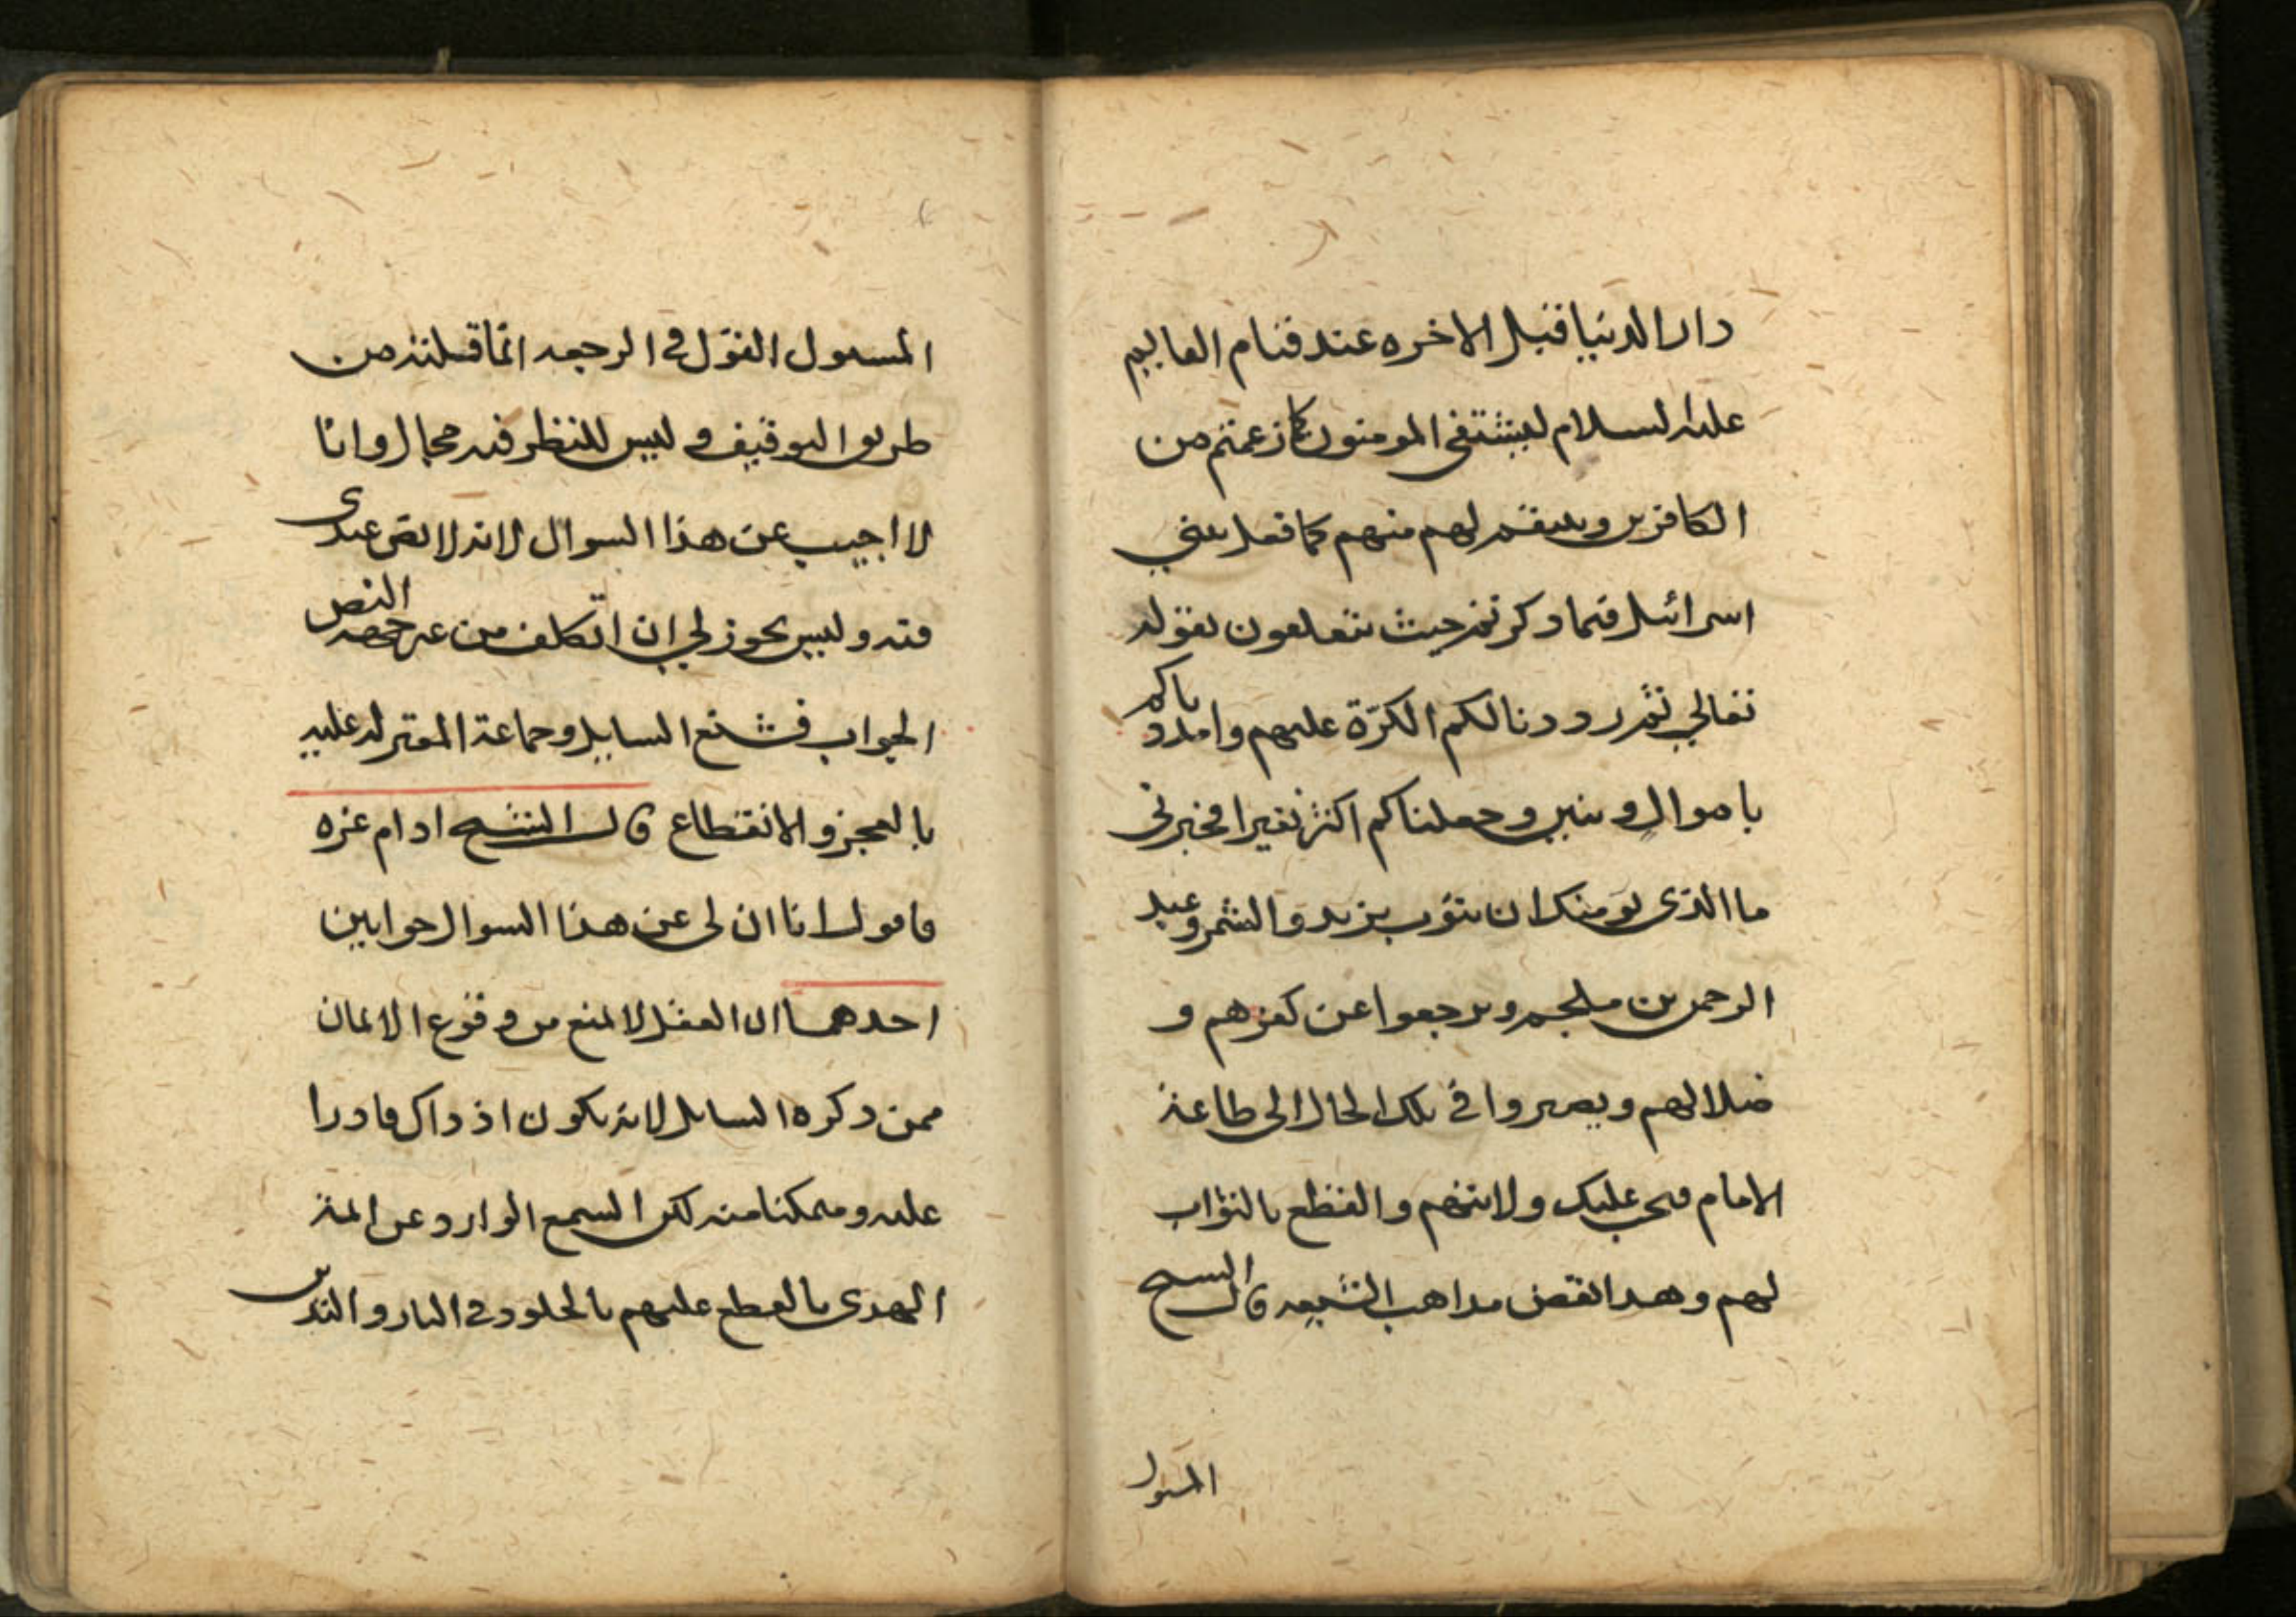 دار الدنيا قبل الاخره عند قيام القايم
عليه السلام ليشتفى المومنون كما زعمتم من
الكافرين وينتقم لهم منهم كما فعل ببني
اسرائيل فيما ذكرتم حيث تتعلقون بقوله
تعالى ثم رددنا لكم الكرّة عليهم وامددناكم
باموال وبنين وجعلناكم اكثر نفيرا فخبرنى
ما الذى يومنك ان يتوب يزيد والشمر وعبد
الرحمن بن ملجم ويرجعوا عن كفرهم و
ضلالهم ويصيروا في تلك الحال الى طاعة
الامام فيجب عليك ولايتهم والقطع بالثواب
لهم وهذا نقض مذاهب الشيعه قال الشيخ
المسول
المسول القول في الرجعه انما قبلته من
طريق التوقيف وليس للنظر فيه مجال وانا
لا اجيب عن هذا السوال لانه لا نص عندى
فيه وليس يجوز لي ان اتكلف من غير جهه النص
الجواب فشنع السايل وجماعة المعتزله عليه
بالعجز والانقطاع قال الشيخ ادام عزه
فاقول انا ان لى عن هذا السوال جوابين
احدهما ان العقل لا يمنع من وقوع الايمان
ممن ذكره السايل لانه يكون اذ ذاك قادرا
عليه ومتمكنا منه لكن السمع الوارد عن ائمة
الهدى بالقطع عليهم بالخلود في النار والتدين